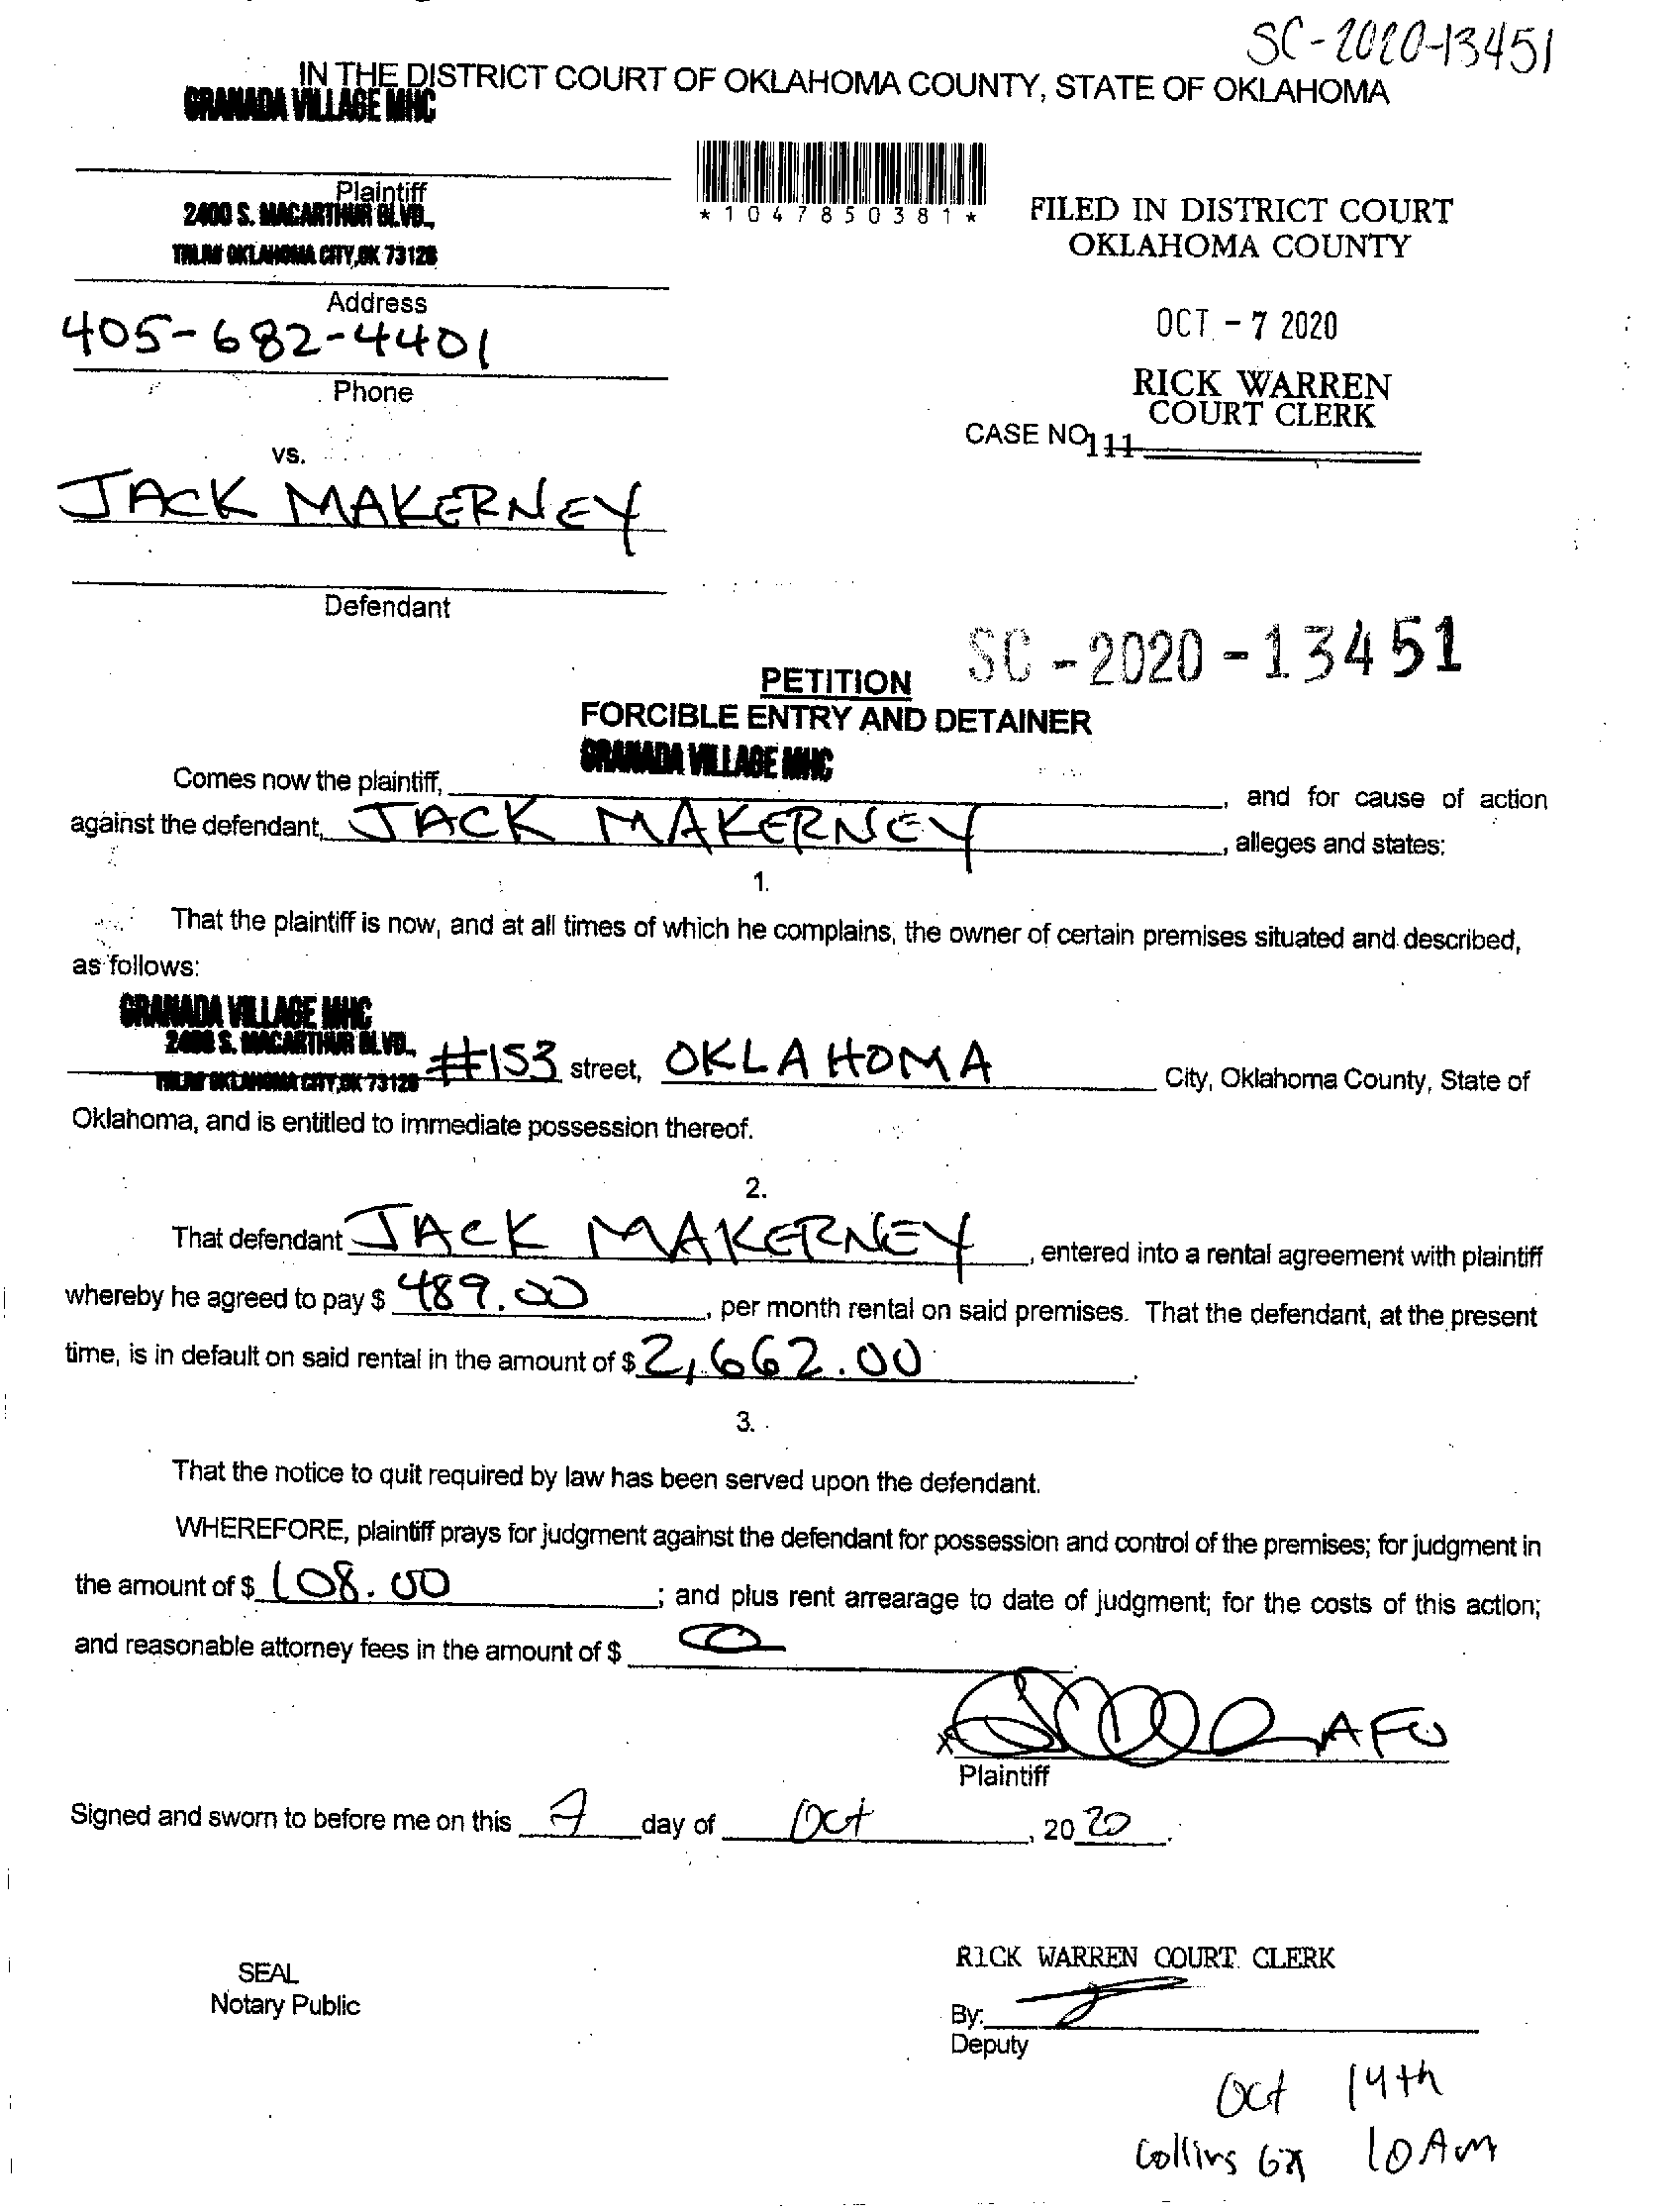 SC-2020-13451
IN THE DISTRICT COURT OF OKLAHOMA COUNTY, STATE OF OKLAHOMA
GRANADA VILLAGE MHC
Plaintiff
2400 S. MACARTHUR BLVD.,
OKLAHOMA CITY, OK 73128
Address
405-682-4401
Phone
*1047850381*
FILED IN DISTRICT COURT
OKLAHOMA COUNTY
OCT - 7 2020
RICK WARREN
COURT CLERK
CASE NO. 111
vs.
JACK MAKERNEY
Defendant
SC-2020-13451
PETITION
FORCIBLE ENTRY AND DETAINER
GRANADA VILLAGE MHC
Comes now the plaintiff, , and for cause of action
against the defendant, JACK MAKERNEY , alleges and states:
1.
That the plaintiff is now, and at all times of which he complains, the owner of certain premises situated and described,
as follows:
GRANADA VILLAGE MHC
2400 S. MACARTHUR BLVD.,
OKLAHOMA CITY, OK 73128 #153 street, OKLAHOMA City, Oklahoma County, State of
Oklahoma, and is entitled to immediate possession thereof.
2.
That defendant JACK MAKERNEY , entered into a rental agreement with plaintiff
whereby he agreed to pay $ 489.00 , per month rental on said premises. That the defendant, at the present
time, is in default on said rental in the amount of $ 2,662.00 .
3.
That the notice to quit required by law has been served upon the defendant.
WHEREFORE, plaintiff prays for judgment against the defendant for possession and control of the premises; for judgment in
the amount of $ 108.00 ; and plus rent arrearage to date of judgment; for the costs of this action;
and reasonable attorney fees in the amount of $ 0 .
X AFU
Plaintiff
Signed and sworn to before me on this 7 day of Oct , 2020 .
SEAL
Notary Public
RICK WARREN COURT CLERK
By:
Deputy
Oct 14th
Collins 10 AM